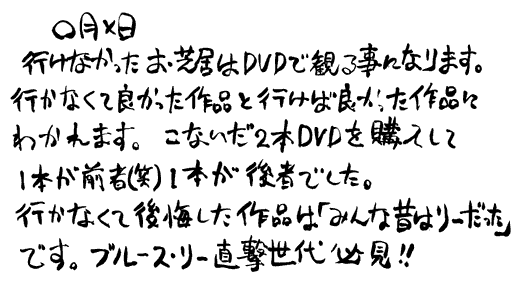 〇月×日
行けなかったお芝居はDVDで観る事になります。
行かなくて良かった作品と行けば良かった作品に
わかれます。こないだ2本DVDを購入して
1本が前者(笑)1本が後者でした。
行かなくて後悔した作品は「みんな昔はリーだった」
です。ブルース・リー直撃世代必見!!